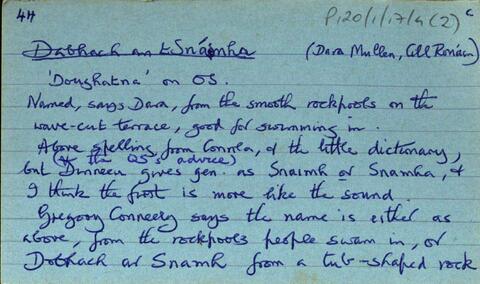 4H P120/1/17/4(2) c
Dabhach an tSnámha (Dara Mullen, Cill Rónáin)
'Doughatna' on OS.
Named, says Dara, from the smooth rockpools on the
wave-cut terrace, good for swimming in.
Above spelling from Connla, & the little dictionary,
(& the OS's advice)
but Dinneen gives gen. as Snaimh or Snamha, &
I think the first is more like the sound.
Gregory Conneely says the name is either as
above, from the rockpools people swam in, or
Dabhach ar Snamh from a tub-shaped rock